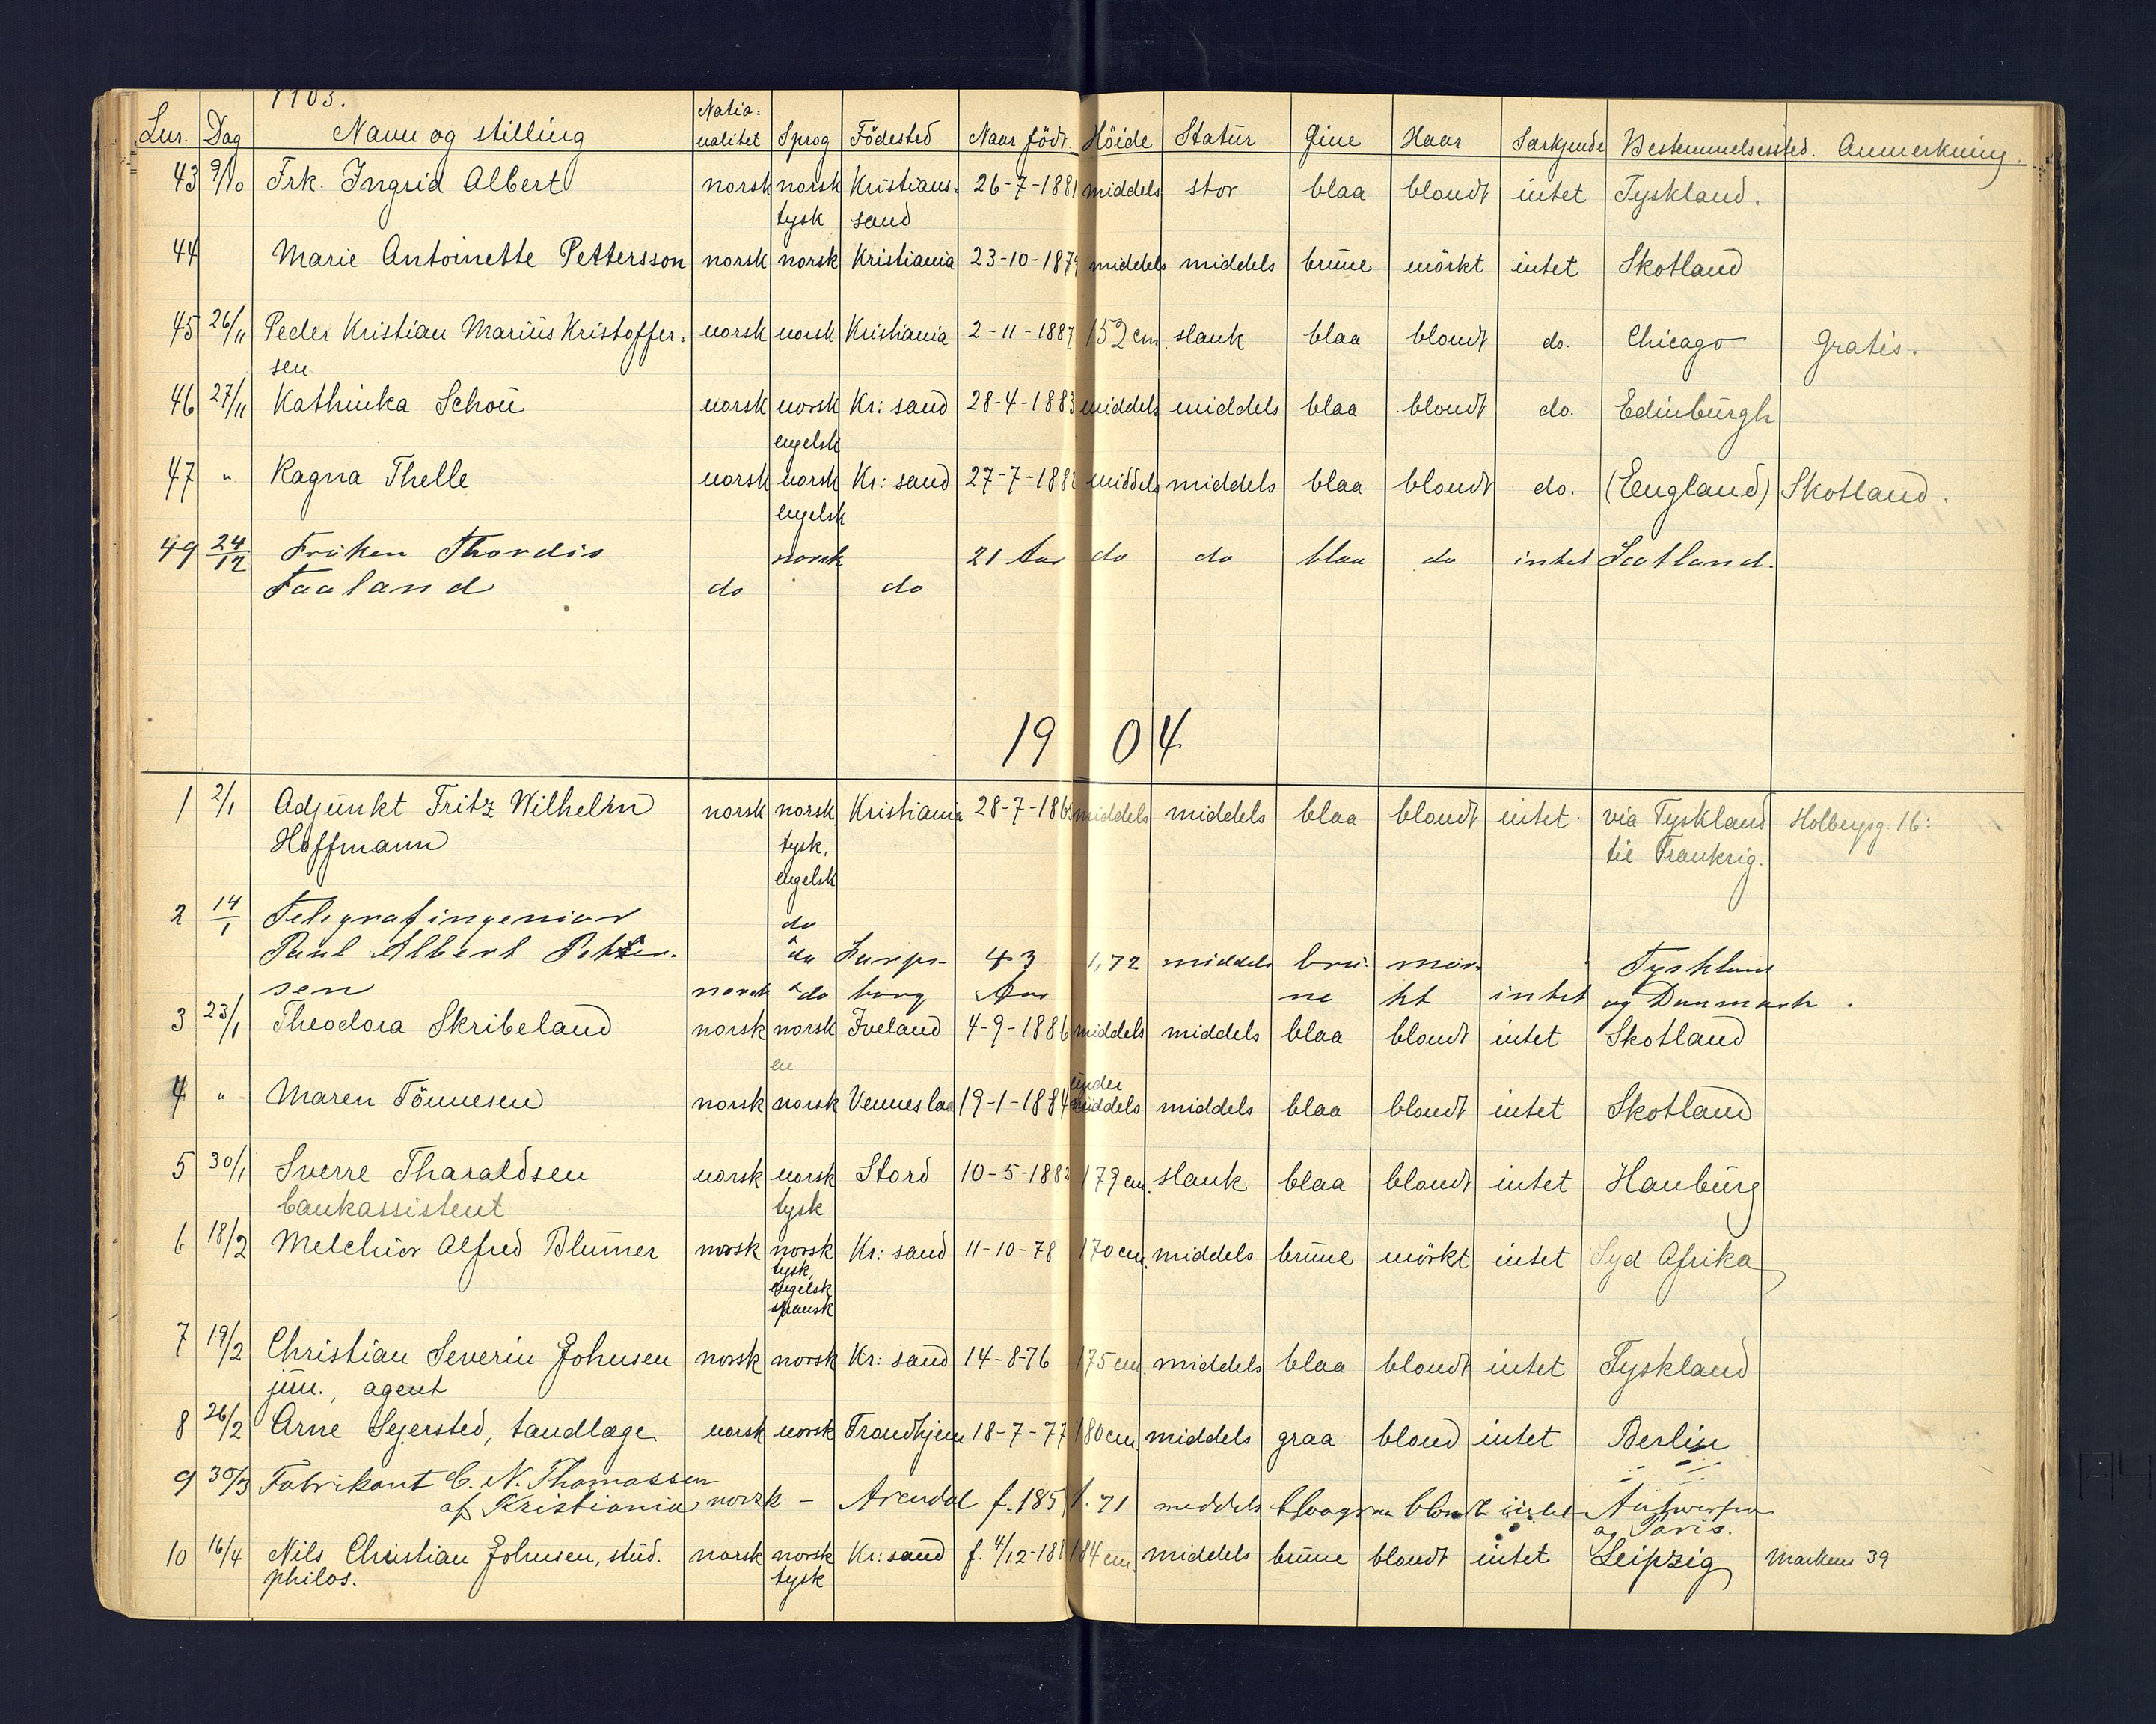 1903.
Lnr. Dag Navn og stilling Natio= nalitet Sprog Födested Naar födt. Höide Statur Øine Haar Særkjende Bestemmelsessted. Anmerkning.
43 9/10 Frk. Ingrid Albert norsk norsk Kristians- 26-7-1881 middels stor blaa blondt intet Tyskland.
tysk sand
44 Marie Antoinette Pettersson norsk norsk Kristiania 23-10-1879 middels middels brune mörkt intet Skotland
45 26/11 Peder Kristian Marius Kristoffer= norsk norsk Kristiania 2-11-1887 152 cm slank blaa blondt do. Chicago Gratis.
sen
46 27/11 Kathinka Schou norsk norsk Kr: sand 28-4-1883 middels middels blaa blondt do. Edinburgh
engelsk
47 " Ragna Thelle norsk norsk Kr: sand 27-7-188 middels middels blaa blondt do. (England) Skotland.
engelsk
49 24/12 Fröken Thordis norsk 21 Aar do do blaa do intet Scotland.
Faaland do do
1904
1 2/1 Adjunkt Fritz Wilhelm norsk norsk Kristiania 28-7-186 middels middels blaa blondt intet via Tyskland Holbergsg. 16:
Hoffmann tysk, til Frankrig.
engelsk
2 14/1 Telegrafingeniør do
Paul Albert Petter- do Sarps- 43 1,72 middels bru- mör- Tyskland
sen norsk do borg Aar ne kt intet og Danmark.
3 23/1 Theodora Skribeland norsk norsk Iveland 4-9-1886 middels middels blaa blondt intet Skotland
en
under
4 " Maren Tönnesen norsk norsk Vennesla 19-1-1884 middels middels blaa blondt intet Skotland
5 30/1 Sverre Tharaldsen norsk norsk Stord 10-5-1882 179 cm. slank blaa blondt intet Hamburg
bankassistent tysk
6 18/2 Melchior Alfred Blumer norsk norsk Kr: sand 11-10-78 170 cm. middels brune mörkt intet Syd Afrika
tysk,
engelsk
spansk
7 19/2 Christian Severin Johnsen norsk norsk Kr: sand 14-8-76 175 cm. middels blaa blondt intet Tyskland
jun., agent
8 26/2 Arne Sejersted, tandlæge norsk norsk Trondhjem 18-7-77 180 cm middels graa blond intet Berlin
9 30/3 Fabrikant C. N. Thomassen
af Kristiania norsk - Arendal f. 185 1.71 middels blaagraa blondt intet Antwerpen
og Paris.
10 16/4 Nils Christian Johnsen, stud. norsk norsk Kr: sand f. 4/12-188 184 cm. middels brune blondt intet Leipzig Markens 39
philos. tysk